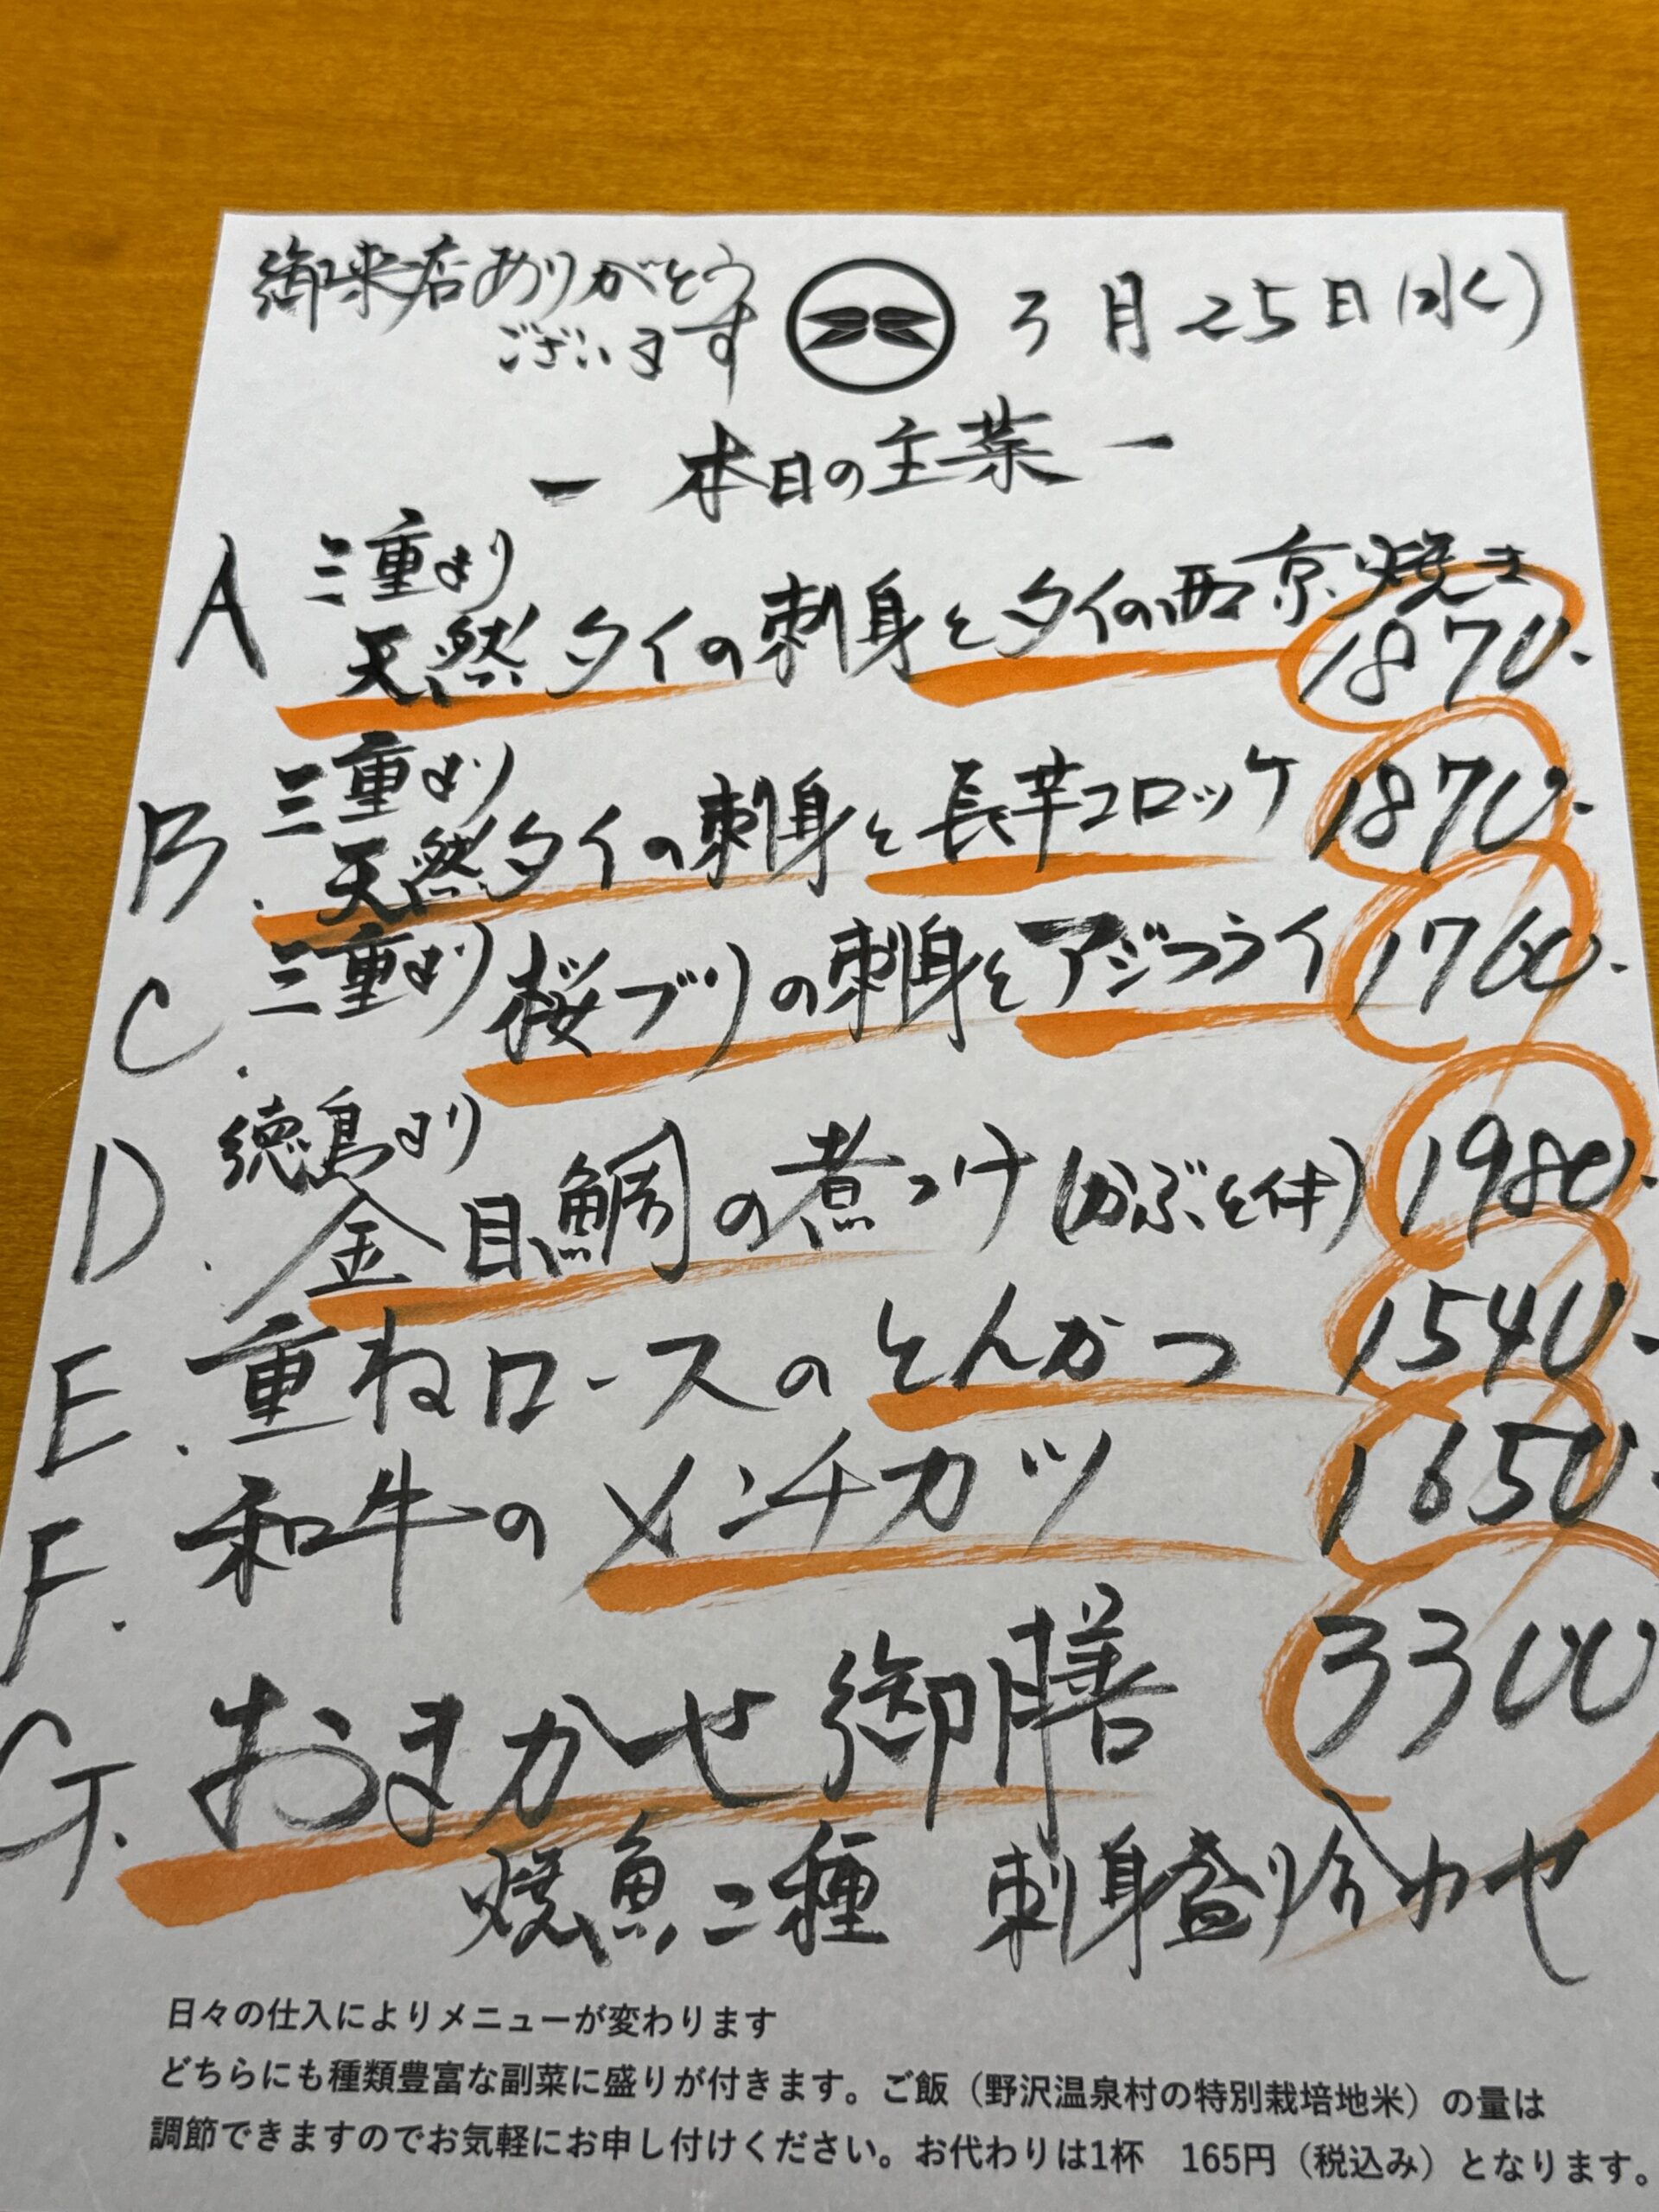 御来店ありがとう
ございます
3月25日(水)
ー 本日の主菜 ー
A 三重より
天然タイの刺身とタイの西京焼き 1870.
B. 三重より
天然タイの刺身と長芋コロッケ 1870.
C. 三重より 桜ブリの刺身とアジフライ 1760.
D. 徳島より
金目鯛の煮つけ(かぶと付) 1980.
E. 重ねロースのとんかつ 1540.
F. 和牛のメンチカツ 1650.
G. おまかせ御膳 3300
焼魚二種 刺身盛り合わせ
日々の仕入によりメニューが変わります
どちらにも種類豊富な副菜に盛りが付きます。ご飯（野沢温泉村の特別栽培地米）の量は
調節できますのでお気軽にお申し付けください。お代わりは1杯　165円（税込み）となります。